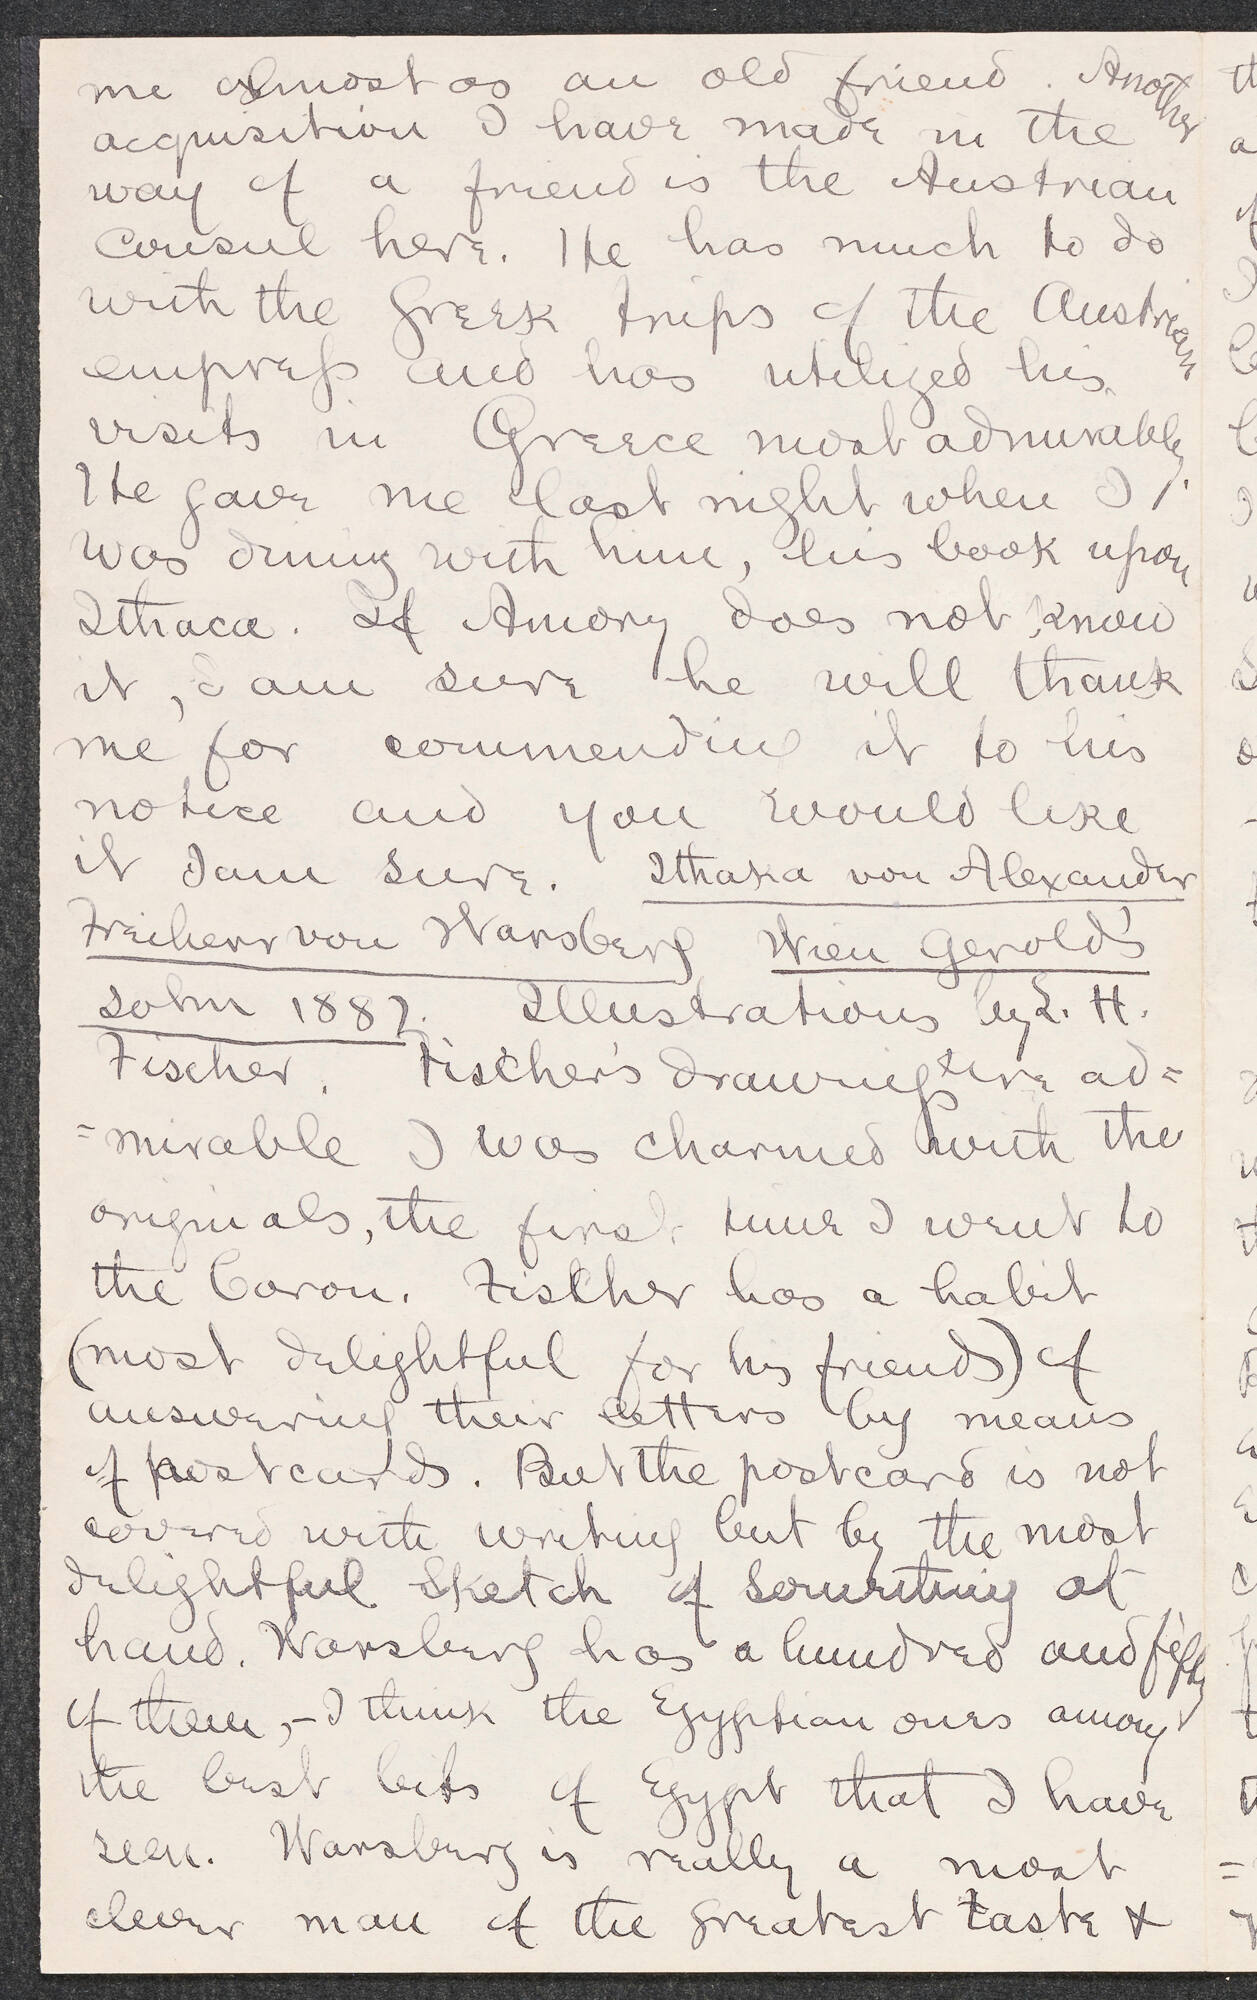 me almost as an old friend. Another
acquisition I have made in the
way of a friend is the Austrian
Consul here. He has much to do
with the Greek trips of the Austrian
empress and has utilized his
visits in Greece most admirably.
He gave me last night when I
was dining with him, his book upon
Ithaca. If Amory does not know
it, I am sure he will thank
me for commending it to his
notice and you would like
it I am sure. Ithaka von Alexander
Freiherr von Warsberg Wien Gerold's
Sohn 1887. Illustrations by L. H.
Fischer. Fischer's drawings are ad=
=mirable I was charmed with the
originals, the first time I went to
the Baron. Fischer has a habit
(most delightful for his friends) of
answering their letters by means
of postcards. But the postcard is not
covered with writing but by the most
delightful sketch of something at
hand. Warsberg has a hundred and fifty
of them,- I think the Egyptian ones among
the best bits of Egypt that I have
seen. Warsberg is really a most
clever man of the greatest taste &